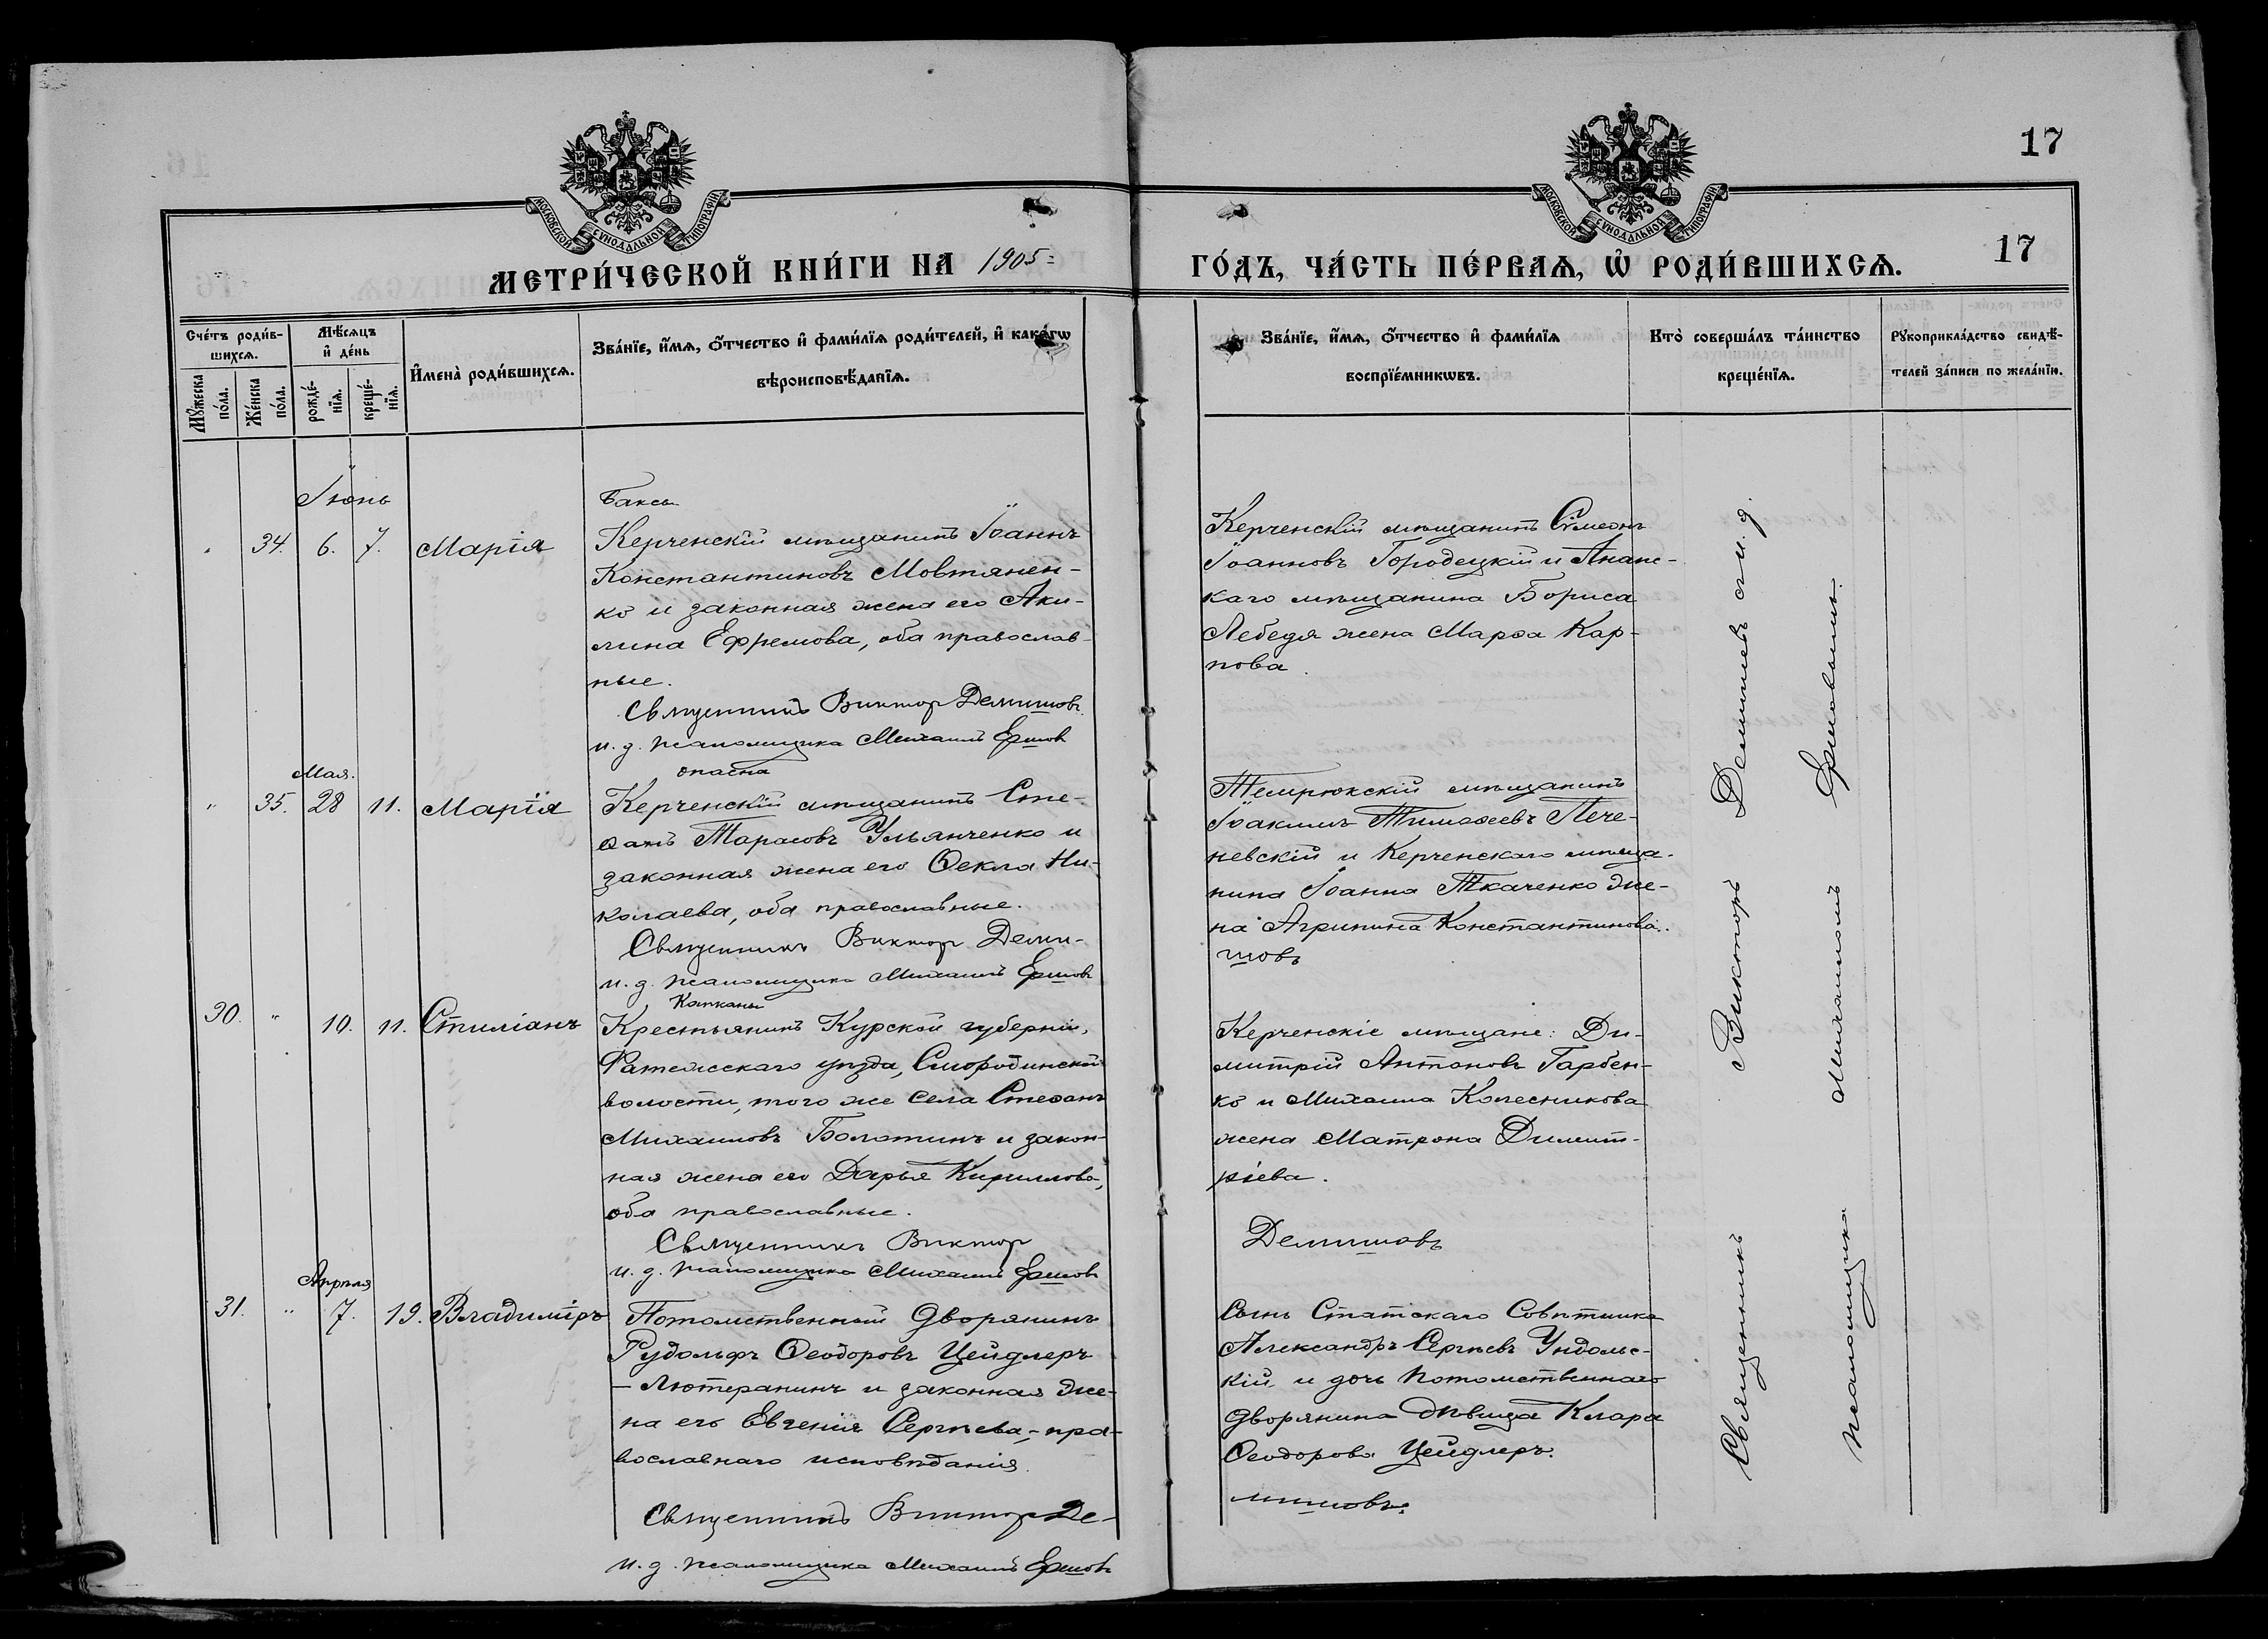 17
МОСКОВСКОЙ СѴНОДАЛЬНОЙ ТИПОГРАФІИ
МОСКОВСКОЙ СѴНОДАЛЬНОЙ ТИПОГРАФІИ
МЕТРИ́ЧЕСКОЙ КНИ́ГИ НА 1905 ГО́ДЪ, ЧА́СТЬ ПЕ́РВАѦ, Ѡ҆ РОДИ́ВШИХСѦ. 17
Сче́тъ роди́в-
шихсѧ.
Мꙋ́жеска по́ла.
Же́нска по́ла.
Мѣ́сѧцъ
и҆ де́нь
рожде́-
нїѧ.
креще́-
нїѧ.
И҆мена̀ роди́вшихсѧ.
Зва́нїе, и҆́мѧ, ѻ҆́тчество и҆ фами́лїѧ роди́телей, и҆ како́гѡ
вѣроисповѣ́данїѧ.
Зва́нїе, и҆́мѧ, ѻ҆́тчество и҆ фами́лїѧ
воспрїе́мникѡвъ.
Кто̀ соверша́лъ та́инство
креще́нїѧ.
Рꙋкоприкла́дство свидѣ́-
телей за́писи по жела́нїю.
Іюнь
Баксы
34. 6. 7. Марія
Керченскій мѣщанинъ Іоаннъ
Константиновъ Мовтянен-
ко и законная жена его Аки-
лина Ефремова, оба православ-
ные.
Священникъ Викторъ Демишовъ
и. д. псаломщика Михаилъ Ершовъ
Керченскій мѣщанинъ Сѵмеонъ
Іоанновъ Городецкій и Анапс-
каго мѣщанина Бориса
Лебедя жена Марѳа Кар-
пова.
Мая.
опасна
" 35. 28 11. Марія
Керченскій мѣщанинъ Сте-
ѳанъ Тарасовъ Ульянченко и
законная жена его Ѳекла Ни-
колаева, оба православные.
Священникъ Викторъ Деми-
и. д. псаломщика Михаилъ Ершовъ
Темрюкскій мѣщанинъ
Іоакимъ Тимоѳеевъ Пече-
невскій и Керченскаго мѣща-
нина Іоанна Ткаченко же-
на Агрипина Константинова.
шовъ
Капканы
30. " 10. 11. Стиліанъ
Крестьянинъ Курской губерніи,
Фатежскаго уѣзда, Смородинской
волости, того же села Стеѳанъ
Михаиловъ Болотинъ и закон-
ная жена его Дарья Кириллова,
оба православные.
Священникъ Викторъ
и. д. псаломщика Михаилъ Ершовъ
Керченскіе мѣщане: Ди-
митрій Антоновъ Гарбен-
ко и Михаила Колесникова
жена Матрона Димит-
ріева.
Демишовъ
Апрѣля
31. " 7. 19. Владиміръ
Потомственный Дворянинъ
Рудольфъ Ѳеодоровъ Цейдлеръ
— Лютеранинъ и законная же-
на его Евгенія Сергѣева, — пра-
вославнаго исповѣданія.
Священникъ Викторъ Де-
и. д. псаломщика Михаилъ Ершовъ
Сынъ Статскаго Совѣтника
Александръ Сергѣевъ Ундольс-
кій и дочь Потомственнаго
Дворянина дѣвица Клара
Ѳеодорова Цейдлеръ.
мишовъ
Священникъ Викторъ Демишевъ съ и. д.
псаломщика Михаиломъ Ершовымъ.